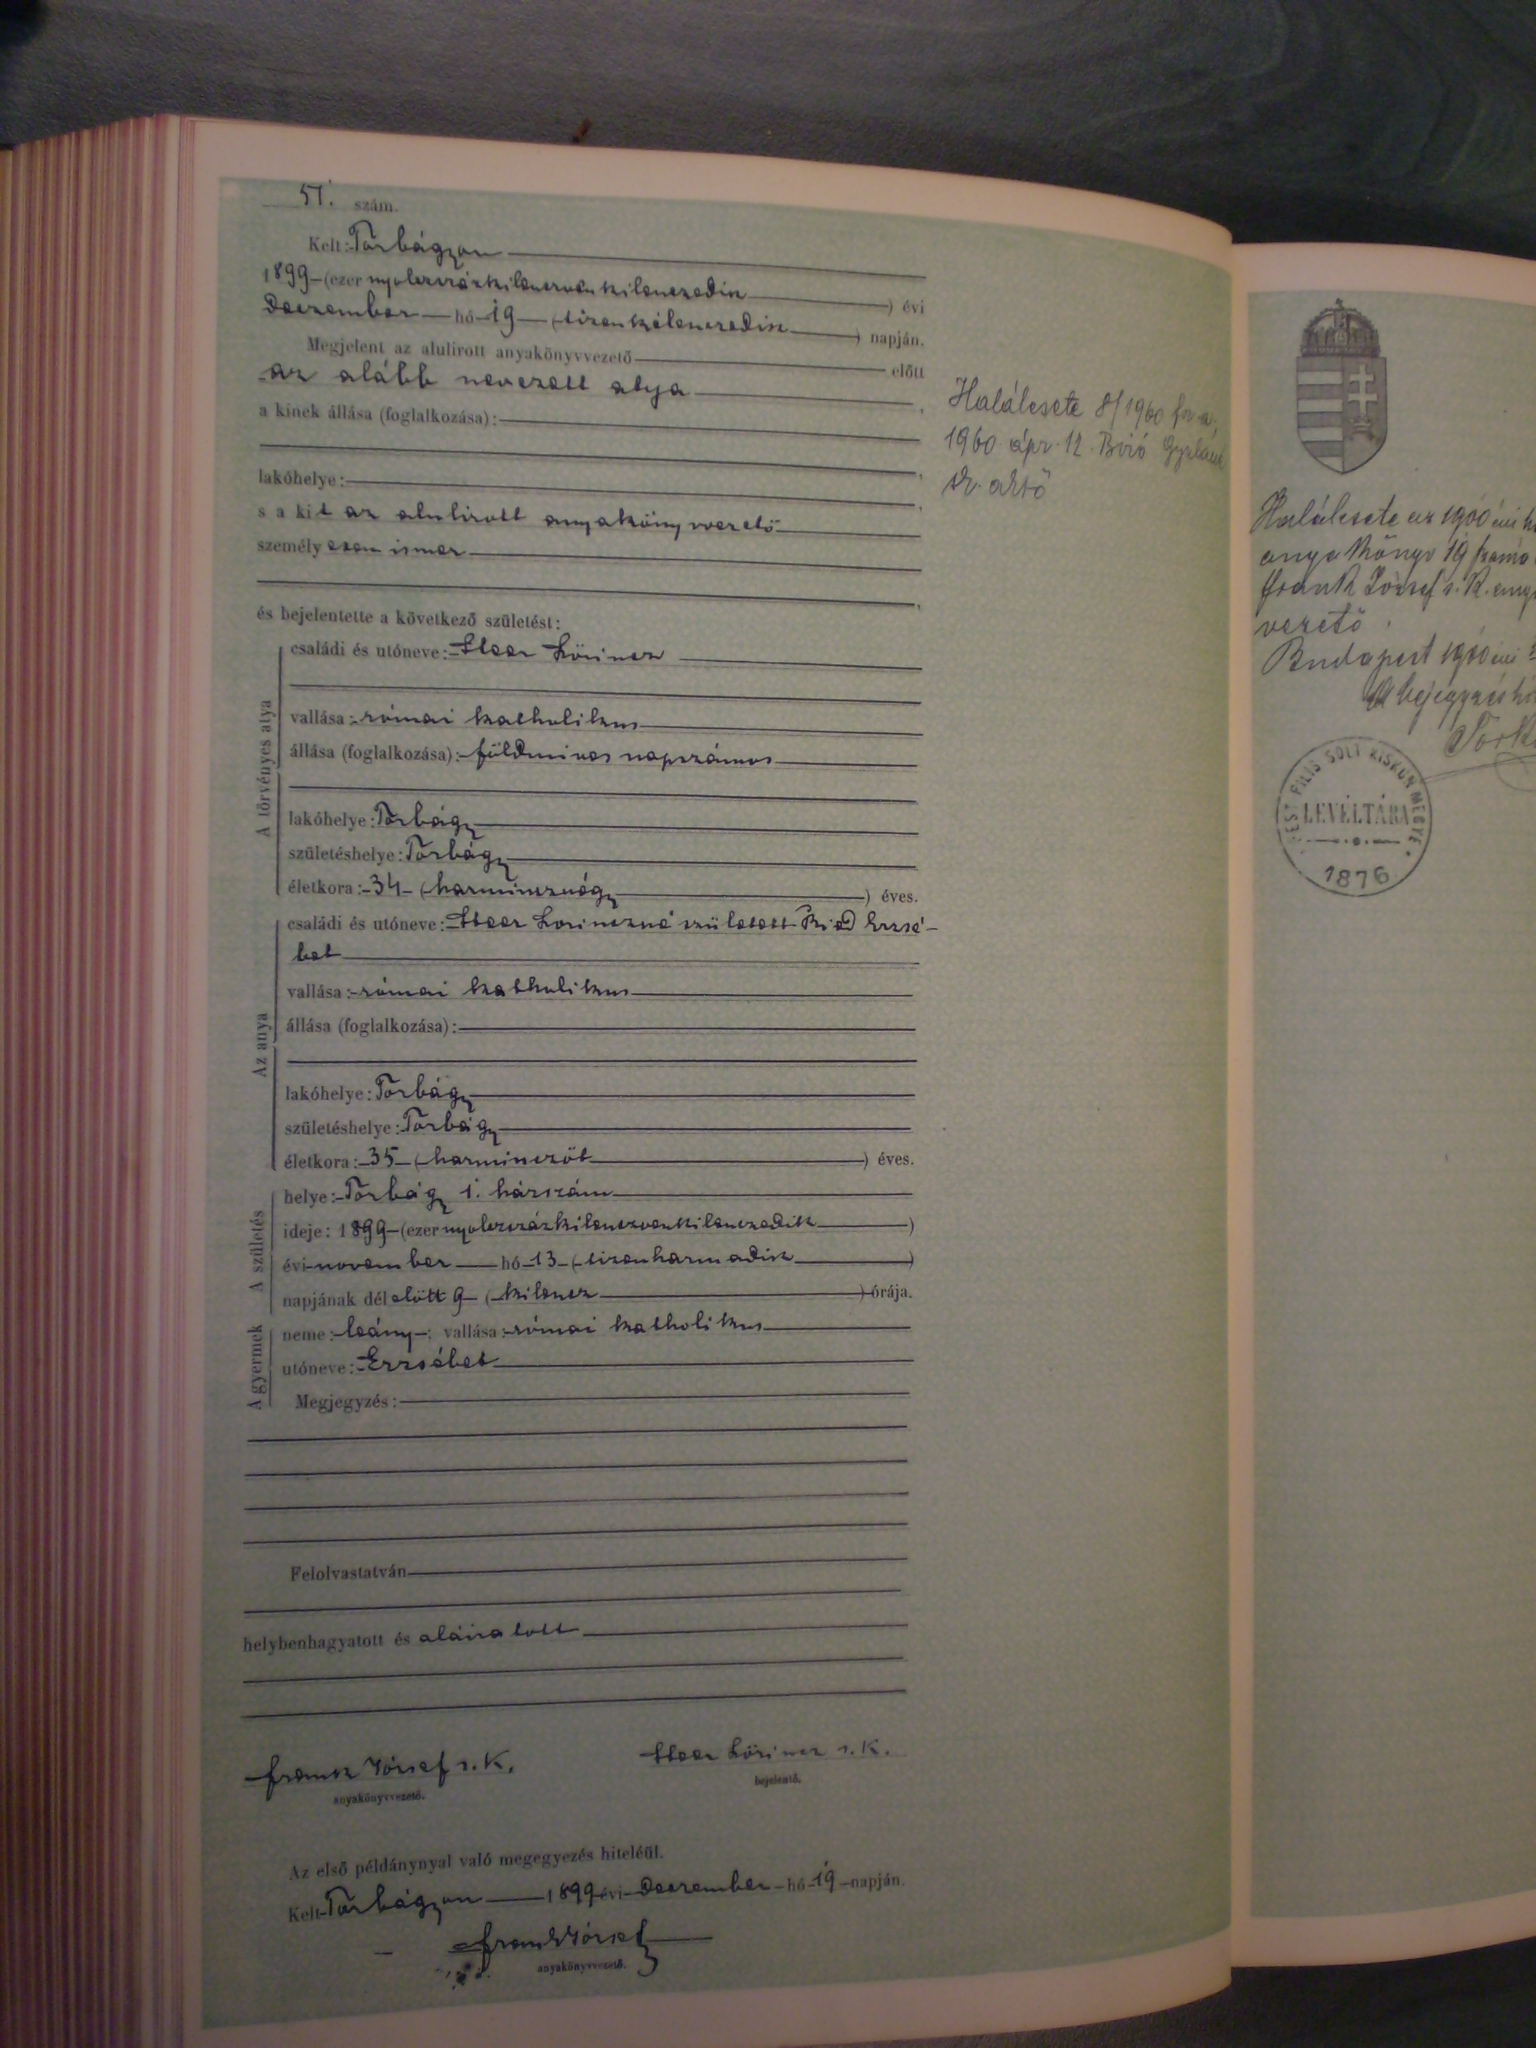 51. szám.
Kelt: Torbágyon
1899 (ezer nyolczszázkilenczvenkilenczedik ) évi
Deczember hó 19 (tizenkilenczedik ) napján.
Megjelent az alulirott anyakönyvvezető előtt
az alább nevezett atya ,
a kinek állása (foglalkozása):
,
lakóhelye: ,
s a kit az alulirott anyakönyvvezető
személyesen ismer
,
és bejelentette a következő születést:
A törvényes atya
családi és utóneve: Steer Lőrincz
vallása: római katholikus
állása (foglalkozása): földmives napszámos
lakóhelye: Torbágy
születéshelye: Torbágy
életkora: 34 (harmincznégy ) éves.
Az anya
családi és utóneve: Steer Lorinczné született Ried Erzsé-
bet
vallása: római katholikus
állása (foglalkozása):
lakóhelye: Torbágy
születéshelye: Torbágy
életkora: 35 (harminczöt ) éves.
A születés
helye: Torbágy 1. házszám
ideje: 1899 (ezer nyolczszázkilenczvenkilenczedik )
évi november hó 13 (tizenharmadik )
napjának délelőtt 9 (kilencz ) órája.
A gyermek
neme: leány ; vallása: római katholikus
utóneve: Erzsébet
Megjegyzés:
Felolvastatván
helybenhagyatott és aláiratott
Frank József s. k.
anyakönyvvezető.
Steer Lőrincz s. k.
bejelentő.
Az első példánynyal való megegyezés hiteléül.
Kelt Torbágyon 1899 évi Deczember hó 19 napján.
Frank József
anyakönyvvezető.
Halálesete 8/1960
1960 ápr. 12. Biró
Halálesete az 1900 évi
anyakönyv 19
Frank József s. k.
vezető
Budapest 1900 évi
A bejegyzés
PEST PILIS SOLT KISKUN MEGYE
LEVÉLTÁRA
1876